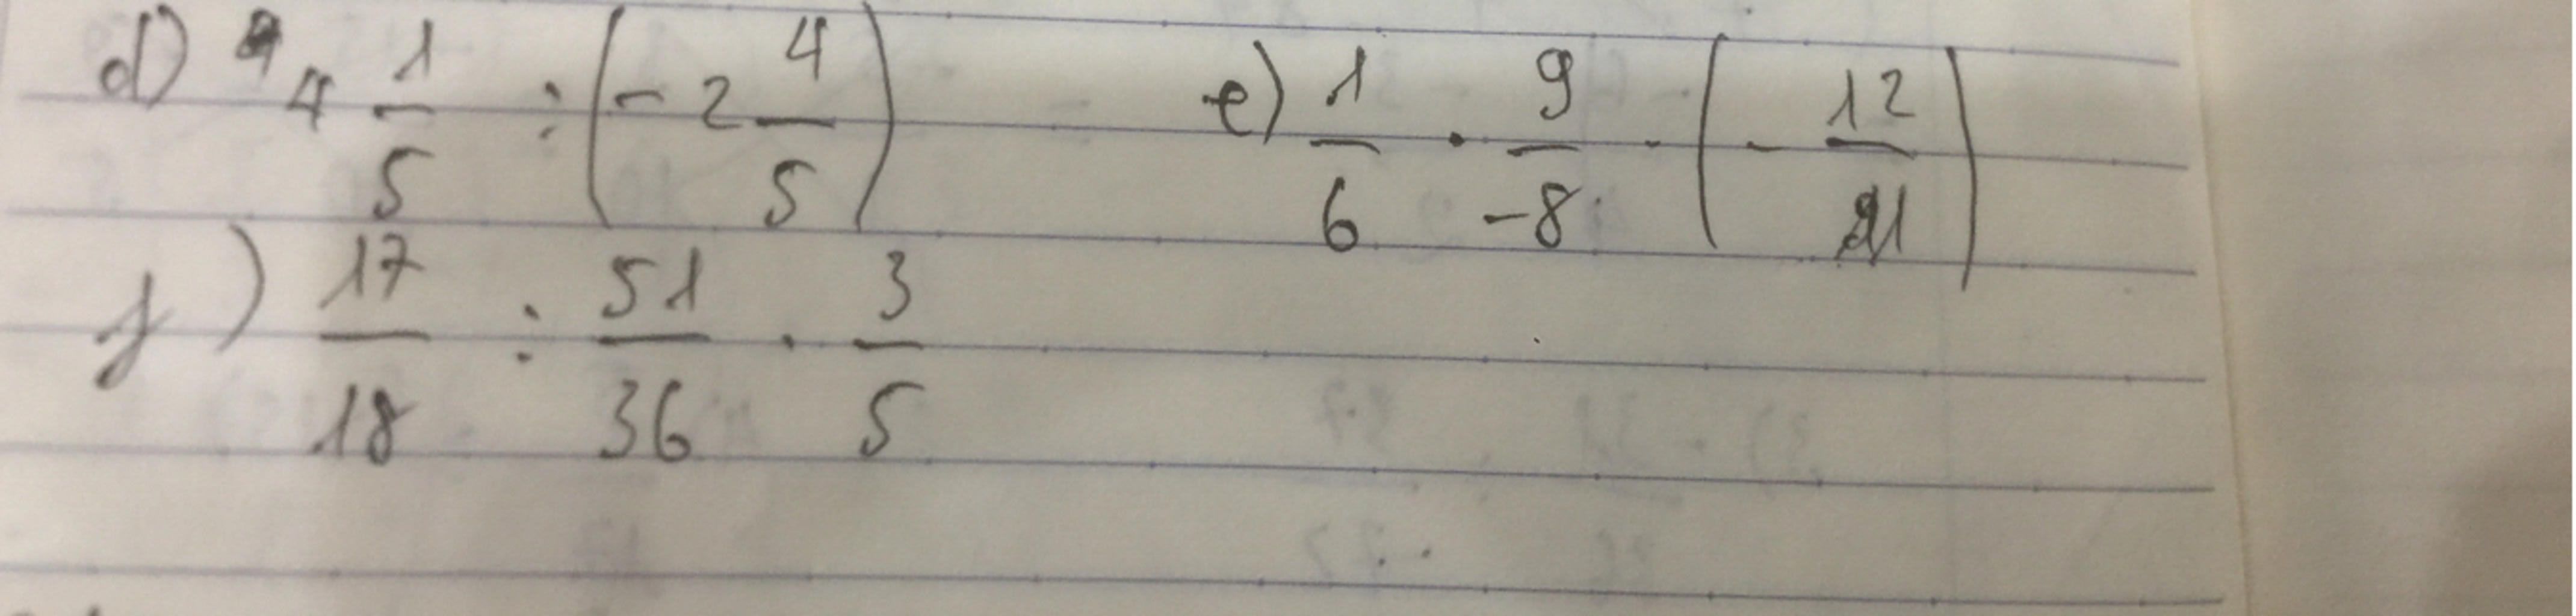 d) 4 1/5 : (-2 4/5) e) 1/6 · 9/-8 · (- 12/21)
f) 17/18 : 51/36 · 3/5